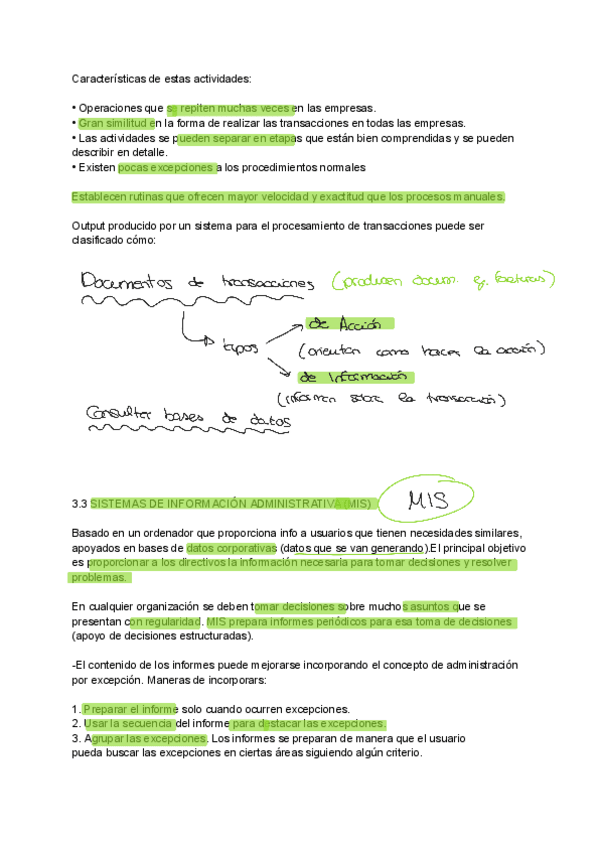 Características de estas actividades:
• Operaciones que se repiten muchas veces en las empresas.
• Gran similitud en la forma de realizar las transacciones en todas las empresas.
• Las actividades se pueden separar en etapas que están bien comprendidas y se pueden
describir en detalle.
• Existen pocas excepciones a los procedimientos normales
Establecen rutinas que ofrecen mayor velocidad y exactitud que los procesos manuales.
Output producido por un sistema para el procesamiento de transacciones puede ser
clasificado cómo:
Documentos de transacciones (producen docum. ej. facturas)
tipos
de Acción
(orientan como hacer la acción)
de Información
(informan sobre la transacción)
Consultar bases de datos
3.3 SISTEMAS DE INFORMACIÓN ADMINISTRATIVA (MIS) MIS
Basado en un ordenador que proporciona info a usuarios que tienen necesidades similares,
apoyados en bases de datos corporativas (datos que se van generando).El principal objetivo
es proporcionar a los directivos la información necesaria para tomar decisiones y resolver
problemas.
En cualquier organización se deben tomar decisiones sobre muchos asuntos que se
presentan con regularidad. MIS prepara informes periódicos para esa toma de decisiones
(apoyo de decisiones estructuradas).
-El contenido de los informes puede mejorarse incorporando el concepto de administración
por excepción. Maneras de incorporars:
1. Preparar el informe solo cuando ocurren excepciones.
2. Usar la secuencia del informe para destacar las excepciones.
3. Agrupar las excepciones. Los informes se preparan de manera que el usuario
pueda buscar las excepciones en ciertas áreas siguiendo algún criterio.